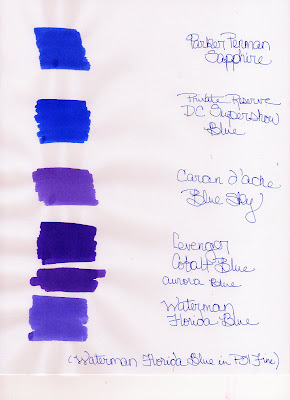 Parker Penman
Sapphire
Private Reserve
DC Supershow
Blue
Caran d'ache
Blue Sky
Levenger
Cobalt Blue
Aurora Blue
Waterman
Florida Blue
(Waterman Florida Blue in P51 Fine)